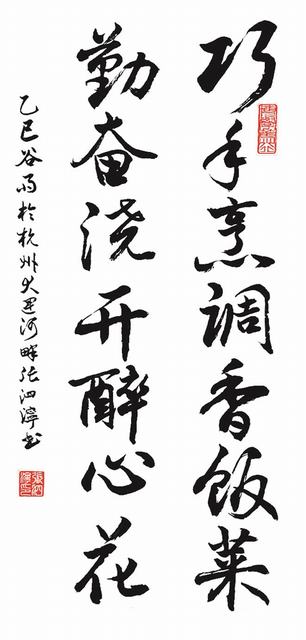 巧手烹调香饭菜
勤奋浇开醉心花
乙巳谷雨於杭州大运河畔张泗濘书